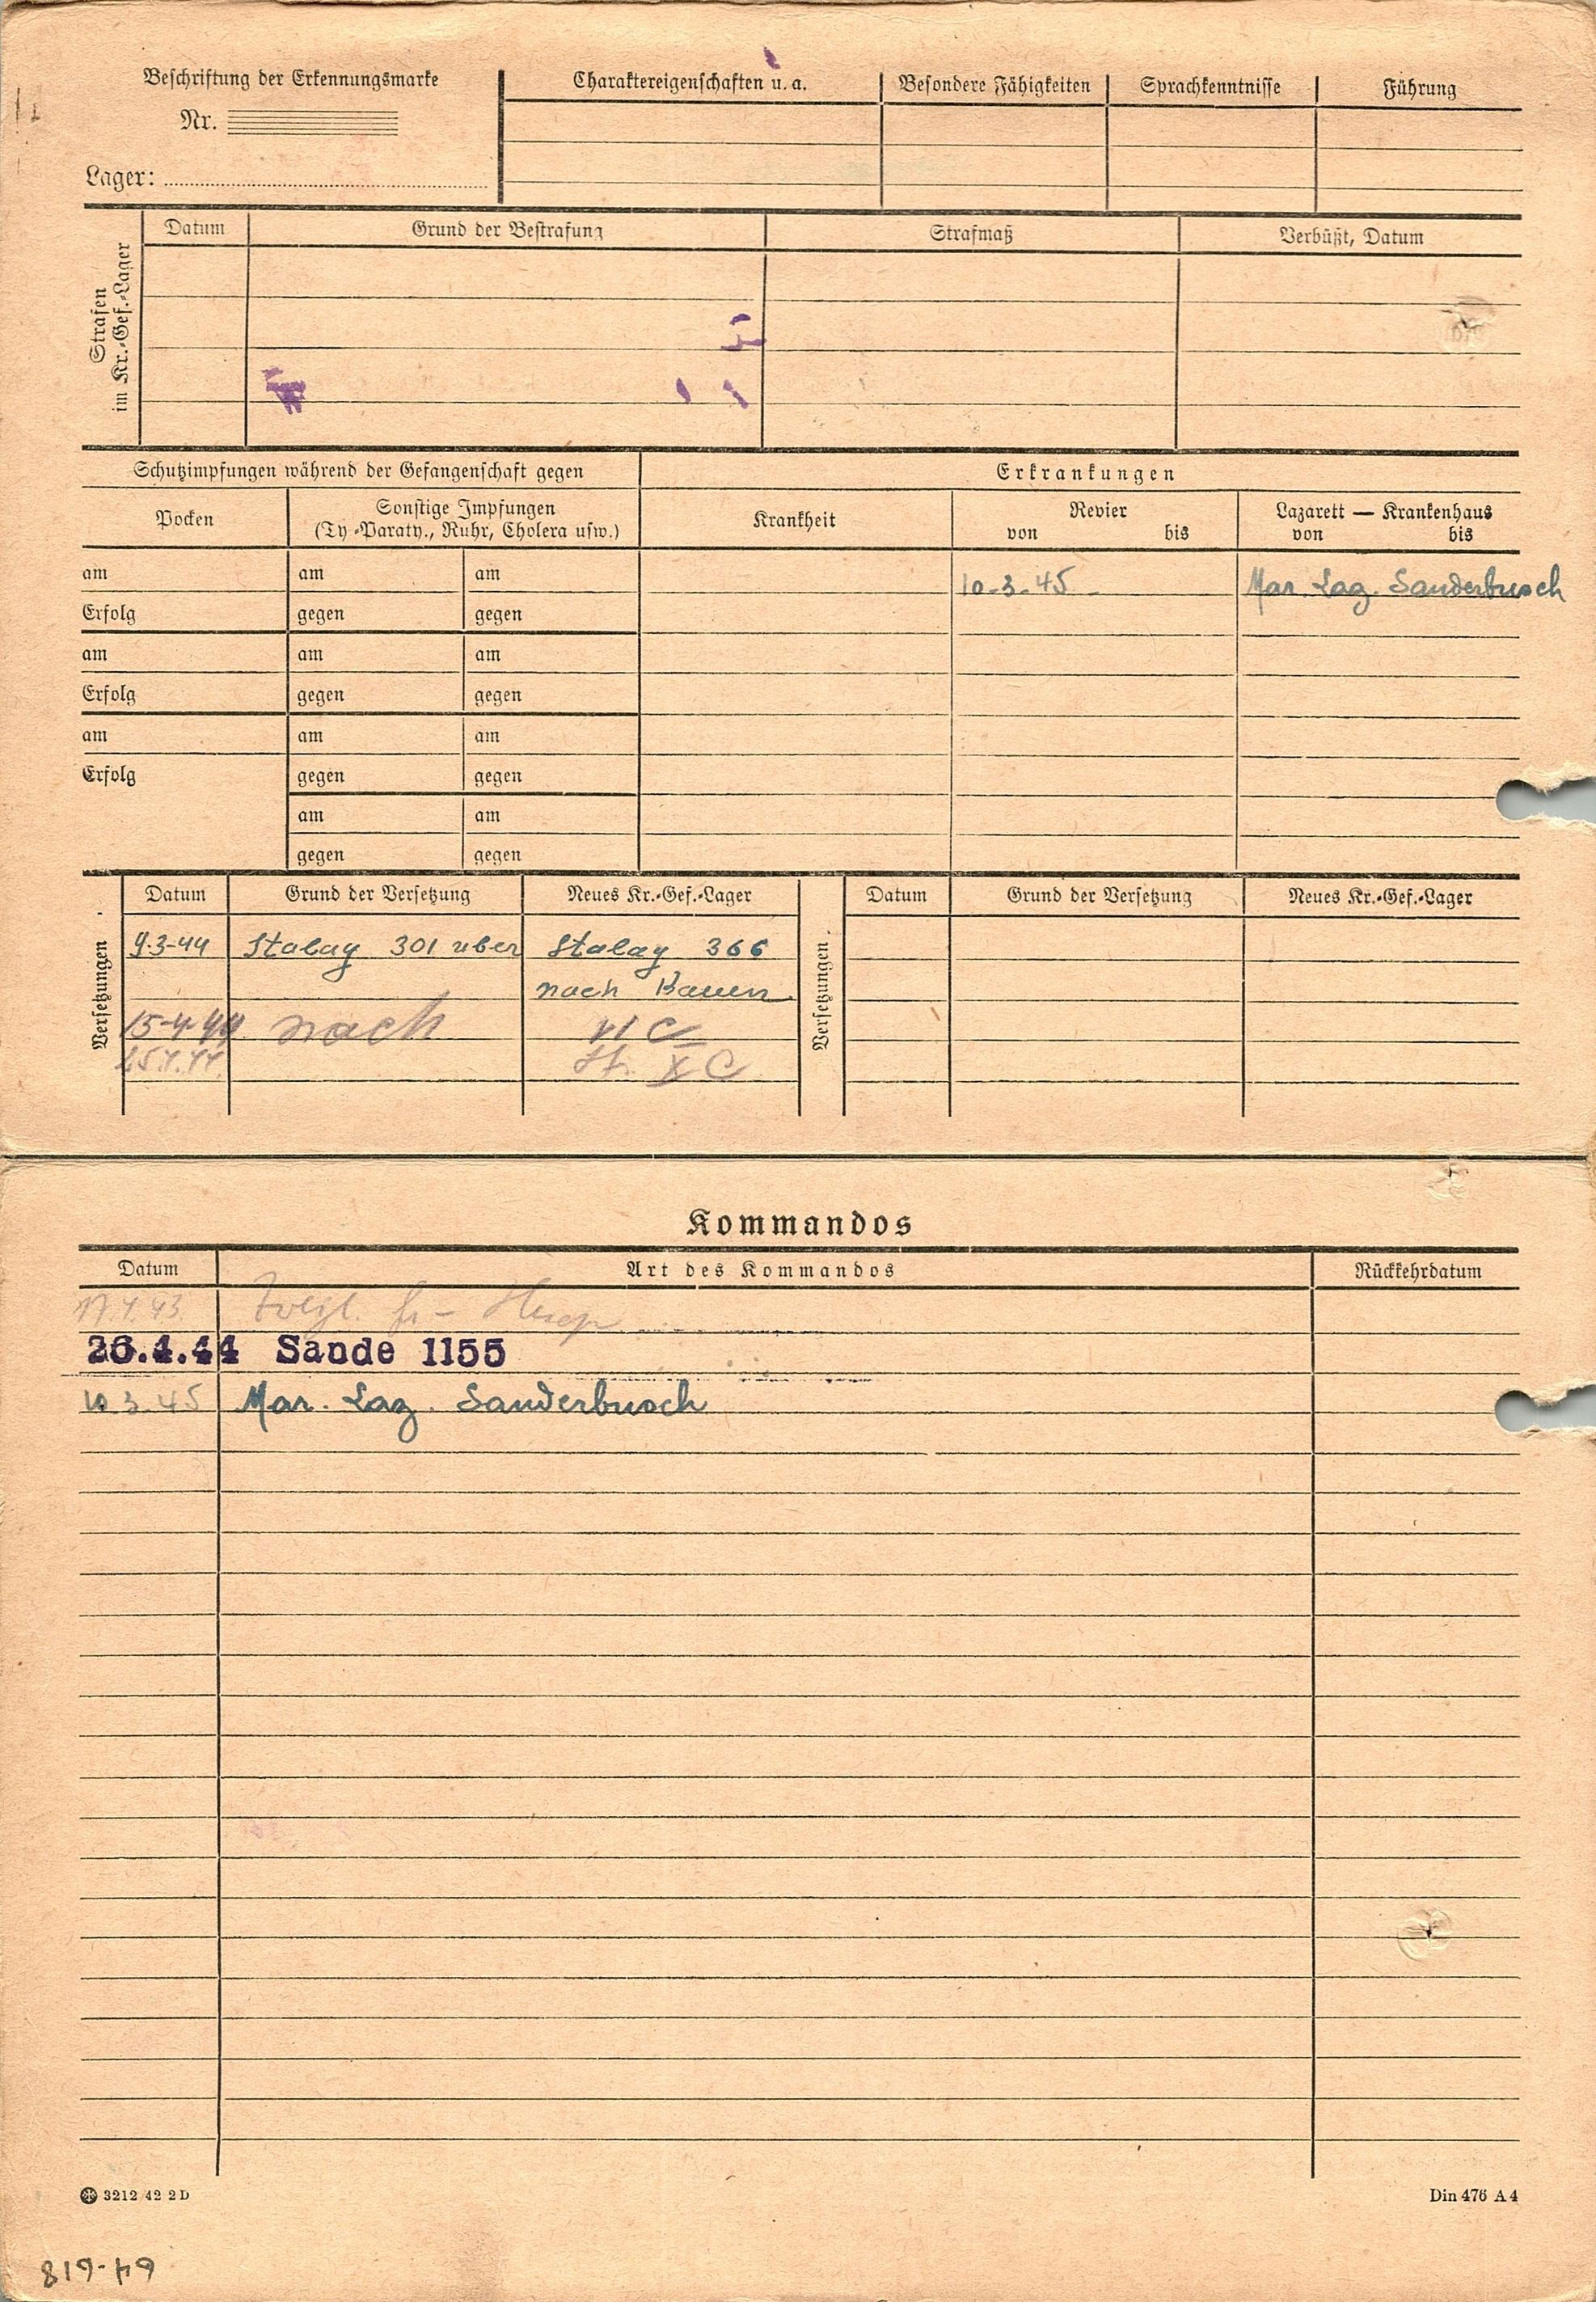 Beschriftung der Erkennungsmarke
Nr.
Lager:
Charaktereigenschaften u. a.
Besondere Fähigkeiten
Sprachkenntnisse
Führung
Strafen
im Kr.-Gef.-Lager
Datum
Grund der Bestrafung
Strafmaß
Verbüßt, Datum
Schutzimpfungen während der Gefangenschaft gegen
Erkrankungen
Pocken
Sonstige Impfungen
(Ty-Paraty., Ruhr, Cholera usw.)
Krankheit
Revier
von bis
Lazarett — Krankenhaus
von bis
am am am 10.3.45 Mar. Laz. Sanderbusch
Erfolg gegen gegen
am am am
Erfolg gegen gegen
am am am
Erfolg gegen gegen
am am
gegen gegen
Versetzungen
Datum Grund der Versetzung Neues Kr.-Gef.-Lager
9.3-44 Stalag 301 uber Stalag 366
nach
15-4-44 nach VI C
St. X C
Versetzungen
Datum Grund der Versetzung Neues Kr.-Gef.-Lager
Kommandos
Datum Art des Kommandos Rückkehrdatum
26.4.44 Sande 1155
10.3.45 Mar. Laz. Sanderbusch
3212 42 2D
Din 476 A 4